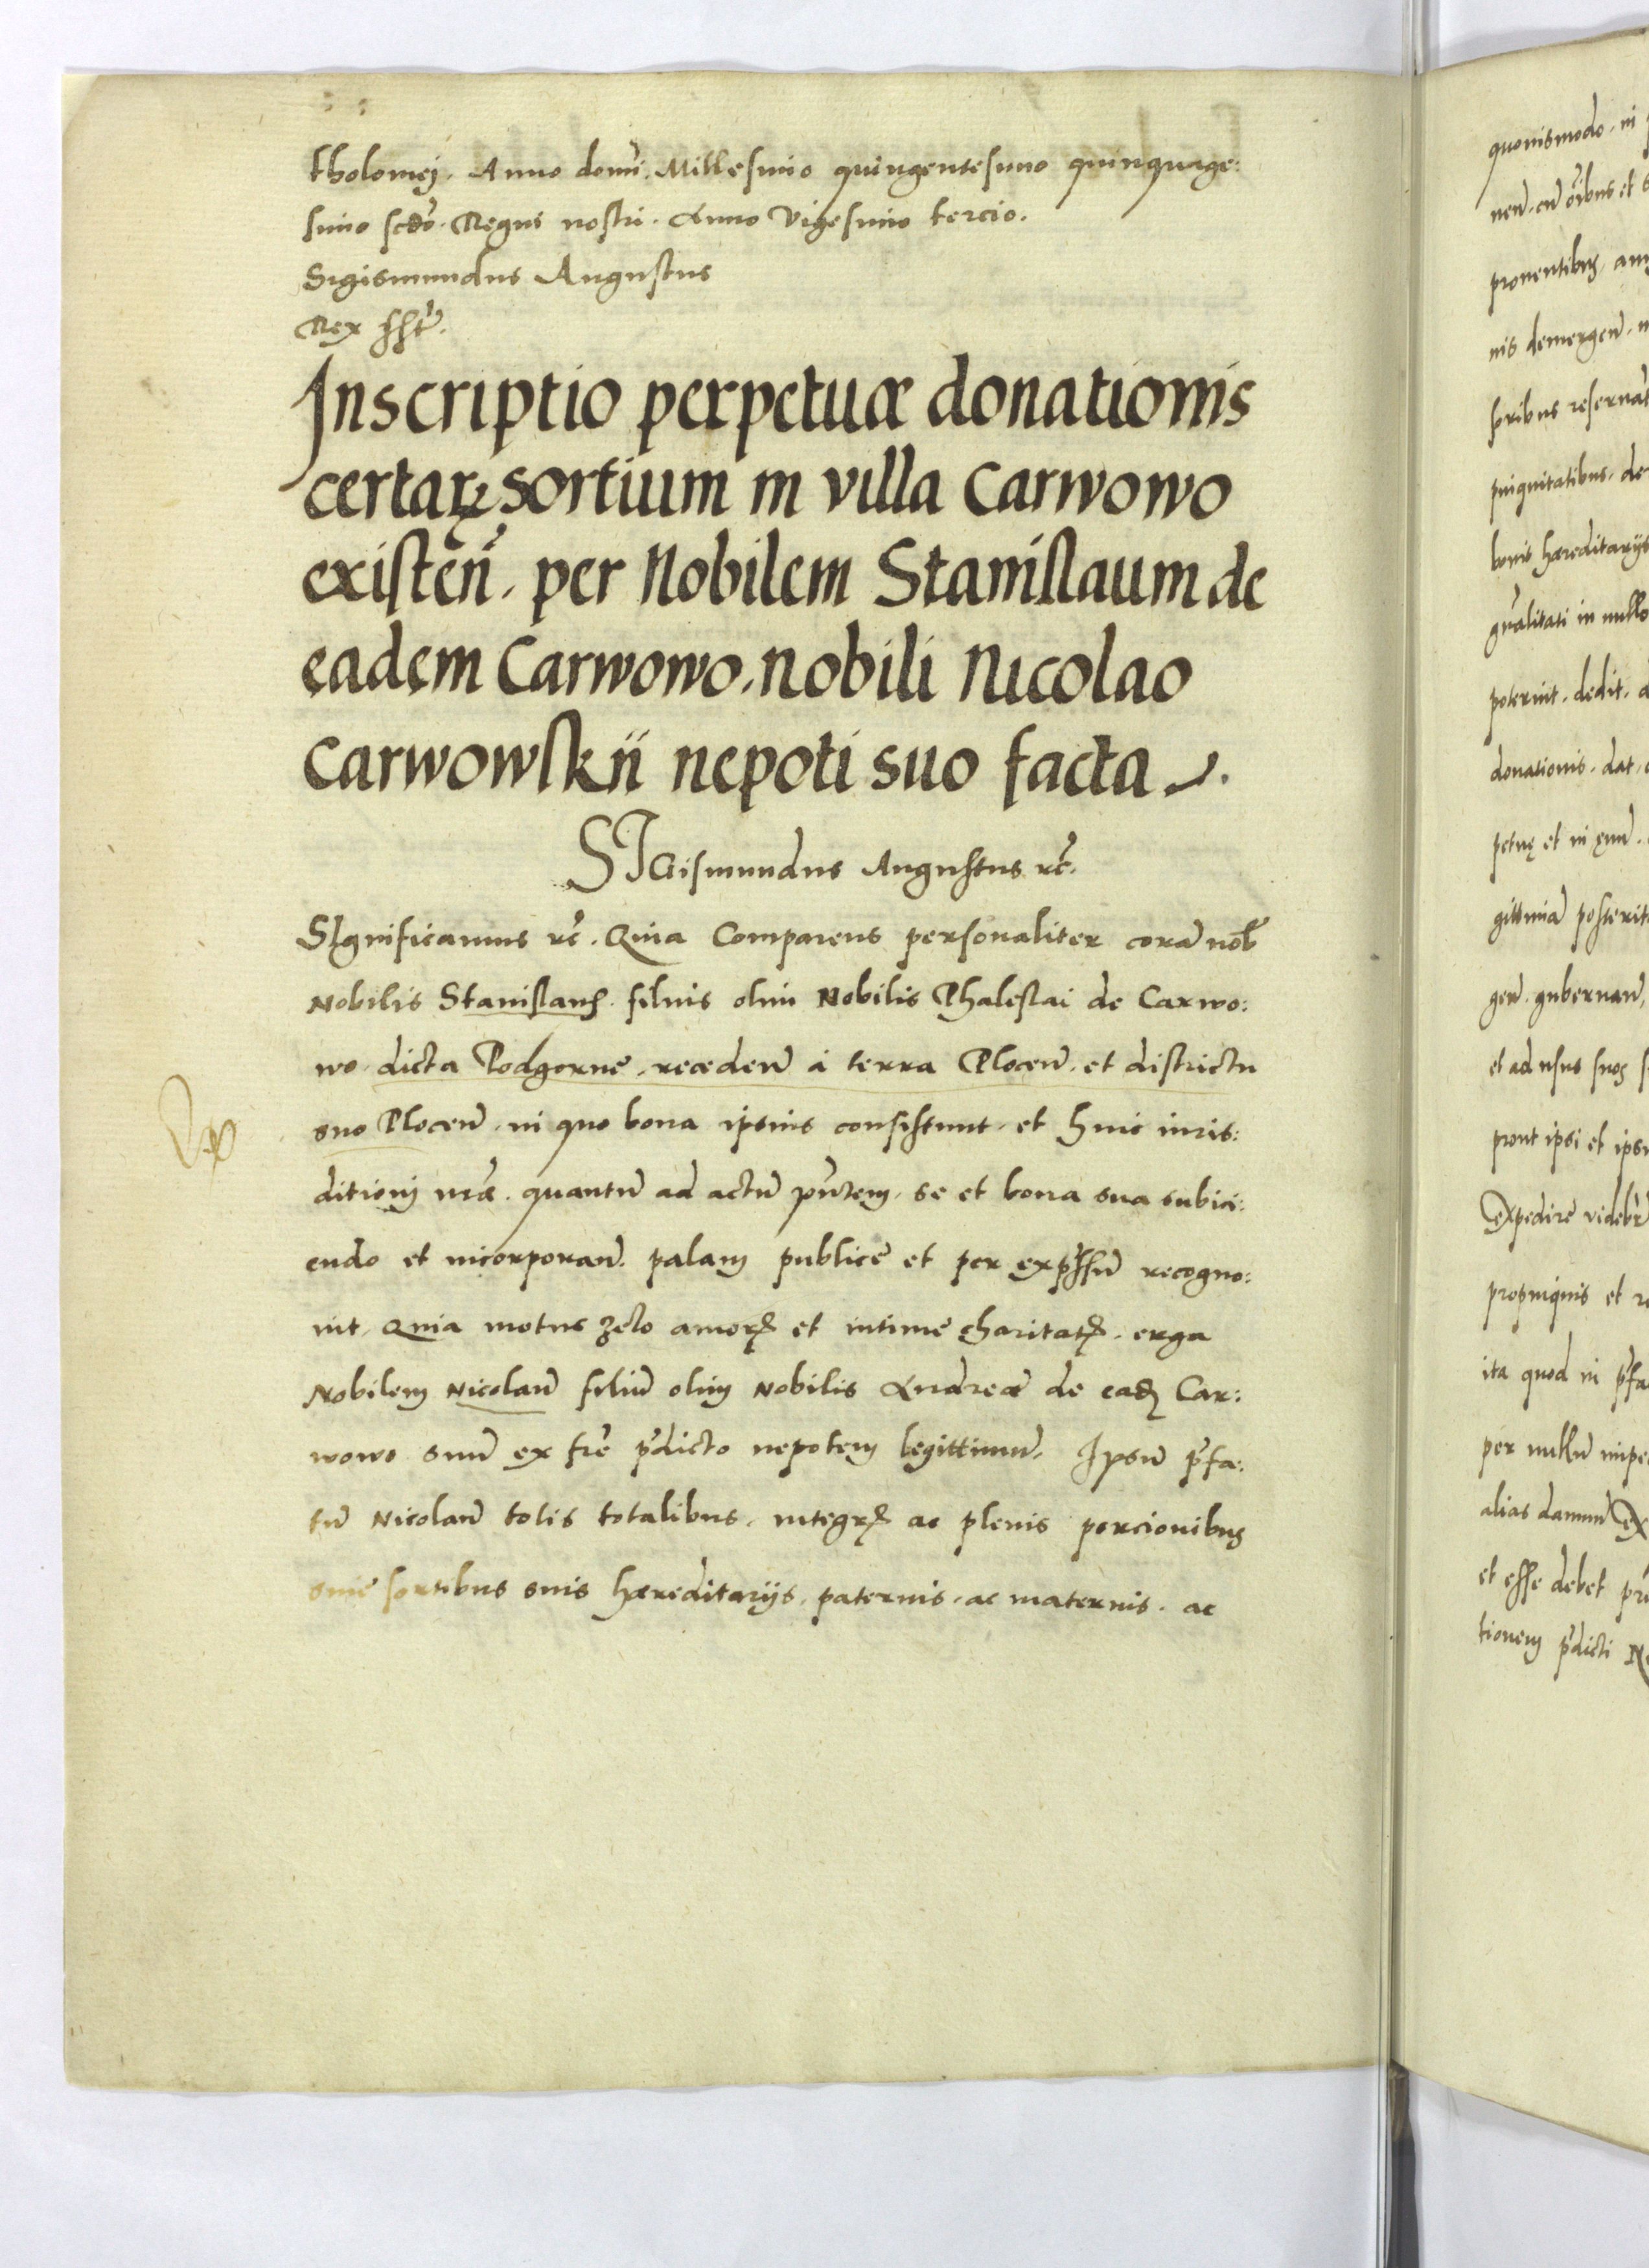 tholomej. Anno domī. Millesimo quingentesimo quinquage:
simo scdō. Regni nostri. Anno Vigesimo tercio.
Sigismundus Augustus
Rex sstr̄.
Inscriptio perpetuæ donationis
certarꝝ sortium in villa Carwowo
existeñ. per Nobilem Stanislaum de
eadem Carwowo. nobili Nicolao
Carwowskii nepoti suo facta
SIGismundus Augustus rc̄.
SIgnificamus rc̄. Quia Comparens personaliter corā nob̄
Nobilis Stanislaus. filius olim Nobilis Phaleslai de Carwo:
wo dicta Podgorne. recedeñ a terra Ploceñ. et districtu
suo Ploceñ. in quo bona ipsius consistunt. et huic iuris:
ditioni nrǣ. quantū ad actū pn̄tem. se et bona sua subici:
endo et incorporañ. palam publice et per exp̄ssū recogno:
uit. Quia motus zelo amorꝭ et intime charitatꝭ. erga
Nobilem Nicolaū filiū olim Nobilis Andreæ de eadꝫ Car:
wowo suū ex fr̄e p̄dicto nepotem legittimū. Ipsū p̄fa:
tū Nicolaū totis totalibus. integrꝭ ac plenis porcionibus
siue sortibus suis hæreditarijs. paternis. ac maternis. ac
quouismodo. in
neñ. cū oībus et
prouentibus, am
nis demergeñ.
soribus reseruat
pinguitatibus. de
bonis hæreditarijs
gn̄alitati in nullo
poterint. dedit.
donationis. dat.
petuę et in ęuū.
gittimā posterit
geñ. gubernañ,
et ad usus suos
prout ipsi et ips
Expedire videbr̄
propinquis et
ita quod in p̄fa
per nullū impe
alias damnū Ex
et esse debet
tionem p̄dicti